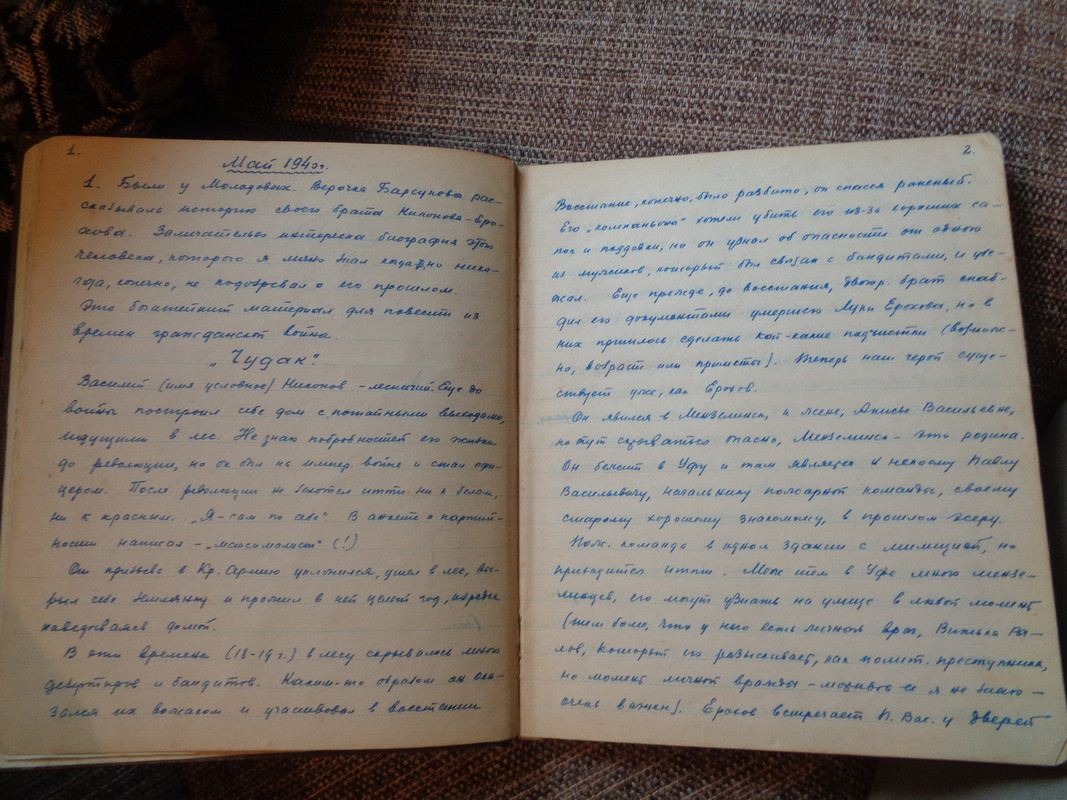 1.
Май 194 г.
1. Были у Молодовых. Верочка Барсукова рас-
сказывала историю своего брата Никонова-Еро-
хова. Замечательно интересна биография этого
человека, которого я лично знал когда-то и нико-
гда, конечно, не подозревал о его прошлом.
Это богатейший материал для повести из
времен гражданской войны.
"Чудак".
Василий (имя условное) Никонов - лесничий. Еще до
войны построил себе дом с потайными выходами,
идущими в лес. Не знаю подробностей его жизни
до революции, но он был на импер. войне и стал офи-
цером. После революции не захотел итти ни к белым,
ни к красным. "Я - сам по себе". В анкете о партий-
ности написал - "максималист" (!)
От призыва в Кр. Армию уклонился, ушел в лес, вы-
рыл себе землянку и прожил в ней целый год, изредка
наведываясь домой.
В эти времена (18-19 г.) в лесу скрывалось много
дезертиров и бандитов. Каким-то образом он ока-
зался их вожаком и участвовал в восстании
2.
Восстание, конечно, было разбито, он спасся раненый.
Его "компаньоны" хотели убить его из-за хороших са-
пог и поддевки, но он узнал об опасности от одного
из мужиков, который был связан с бандитами, и убе-
жал. Еще прежде, до восстания, двоюр. брат снаб-
дил его документами умершего Луки Ерохова, но в
них пришлось сделать кой-какие подчистки (возмож-
но, возраст или приметы). Теперь наш герой суще-
ствует уже, как Ерохов.
Он явился в Мензелинск, к жене, Анисье Васильевне,
но тут скрываться опасно, Мензелинск - его родина.
Он бежит в Уфу и там является к некоему Павлу
Васильевичу, начальнику пожарной команды, своему
старому хорошему знакомому, в прошлом эсеру.
Пож. команда в одном здании с милицией, но
приходится итти. Меж тем в Уфе много мензе-
линцев, его могут узнать на улице в любой момент
(тем более, что у него есть личный враг, Витька
лов, который его разыскивает, как полит. преступника,
но момент личной вражды - очень важен). Ерохов встречает П. Вас. у дверей